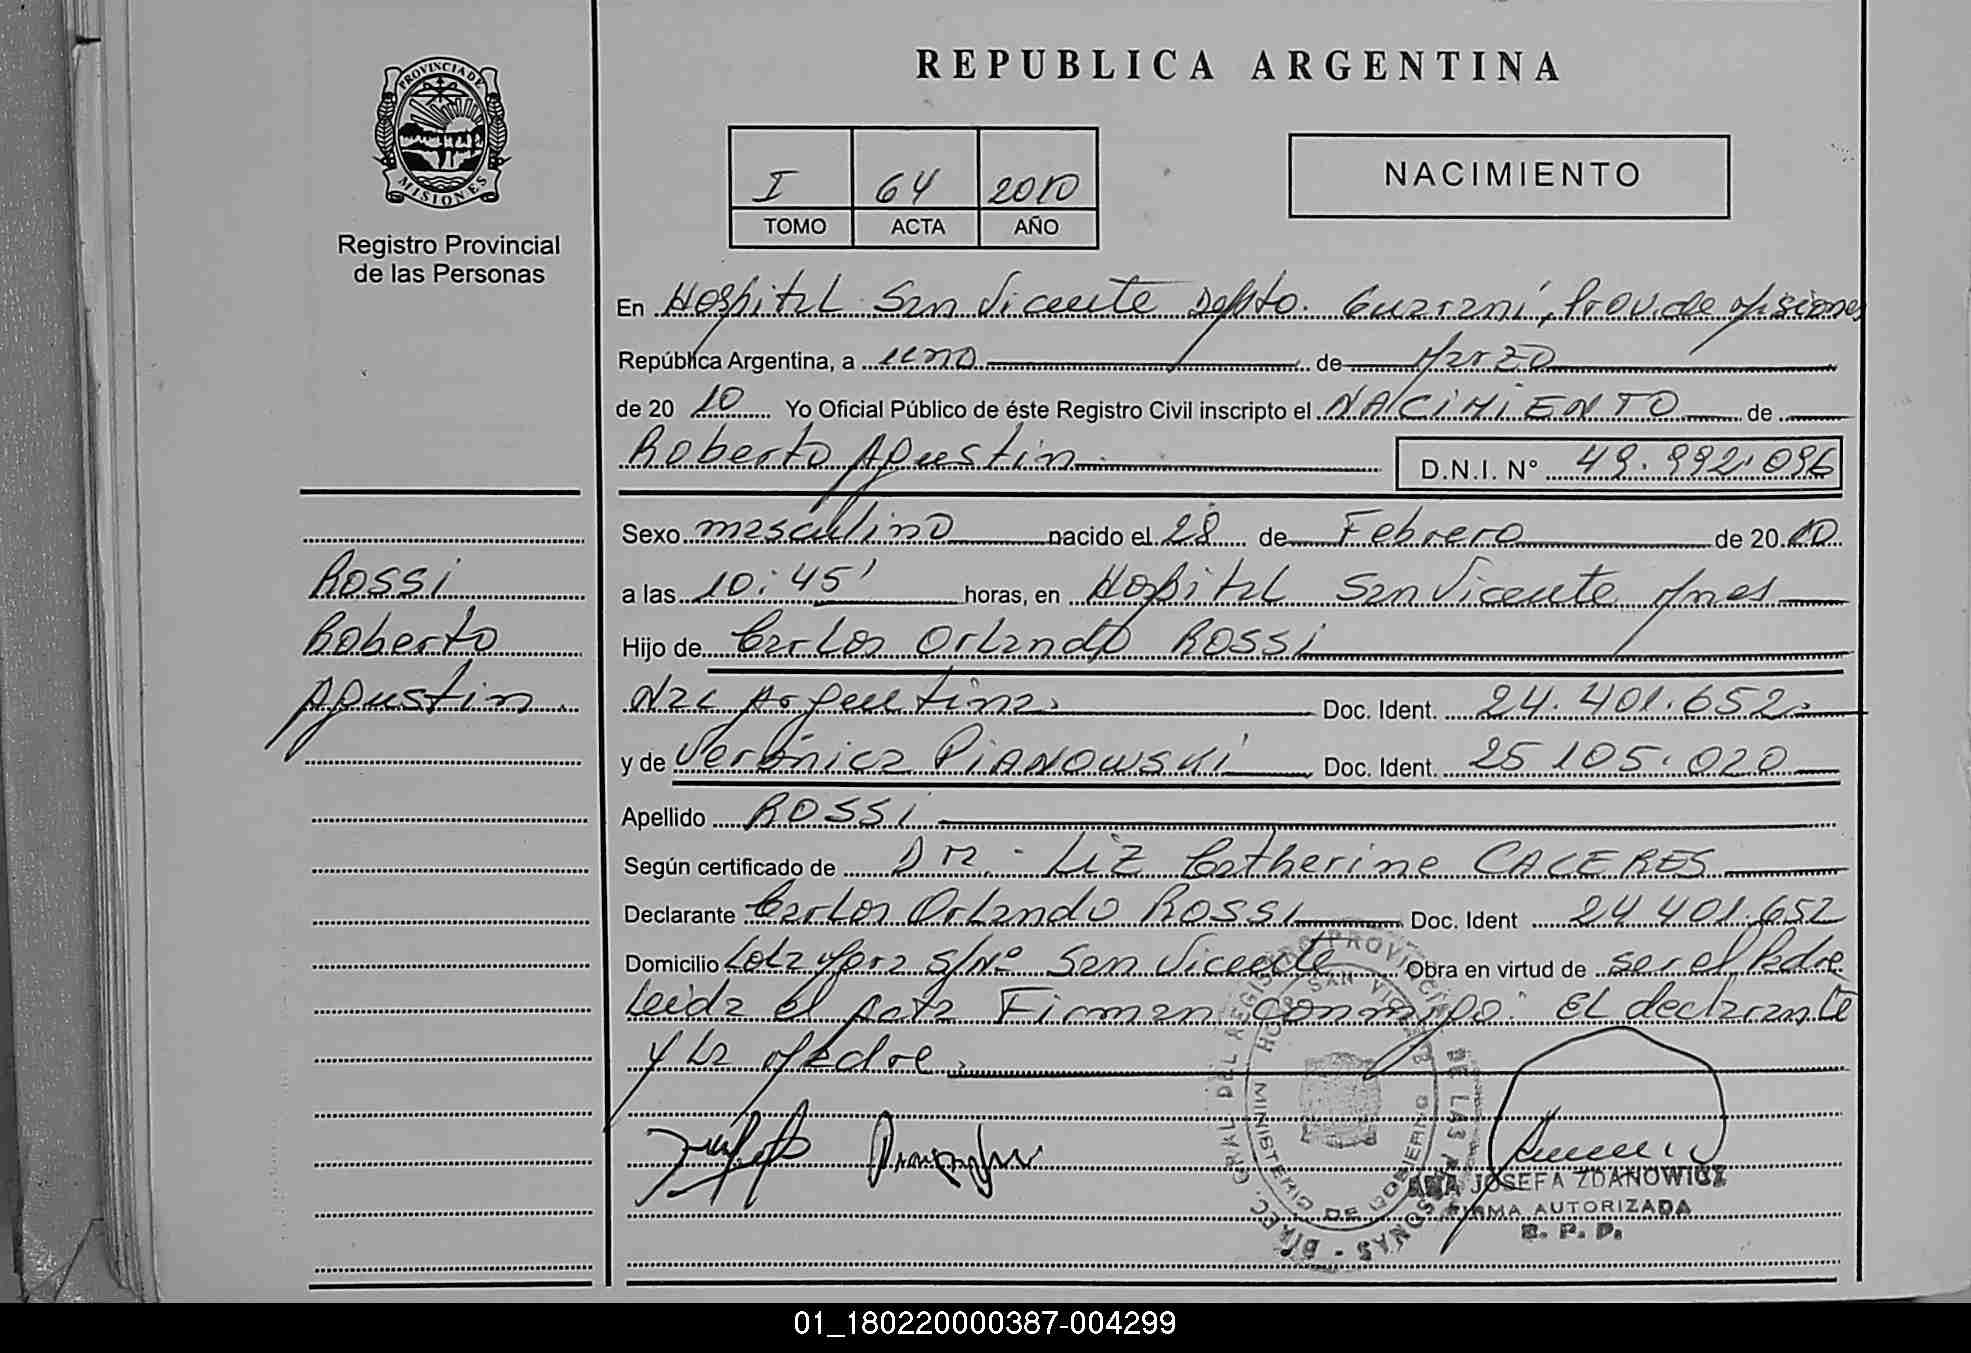 REPUBLICA ARGENTINA
PROVINCIA DE MISIONES
Registro Provincial
de las Personas
I 64 2010
TOMO ACTA AÑO
NACIMIENTO
En Hospital San Vicente Depto. Guaraní, Prov. de Misiones
República Argentina, a uno de Marzo
de 20 10 Yo Oficial Público de éste Registro Civil inscripto el NACIMIENTO de
Roberto Agustin D.N.I. N° 49.992.096
Sexo masculino nacido el 28 de Febrero de 20 10
a las 10:45' horas, en Hospital San Vicente Mnes
Hijo de Carlos Orlando ROSSI
Nac Argentina. Doc. Ident. 24.401.652.
y de Verónica PIANOWSKI Doc. Ident. 25 105.020
Apellido ROSSI
Según certificado de Dra. Liz Catherine CACERES
Declarante Carlos Orlando ROSSI Doc. Ident 24 401.652
Domicilio s/Nº San Vicente Obra en virtud de ser el Padre
Leida el acta Firman conmigo: El declarante
y La Madre.
ROSSI
Roberto
Agustin.
DIREC. GRAL. DEL REGISTRO PROVINCIAL DE LAS PERSONAS
HOSP. SAN VICENTE
MINISTERIO DE GOBIERNO
ANA JOSEFA ZDANOWICZ
FIRMA AUTORIZADA
R. P. P.
01_180220000387-004299